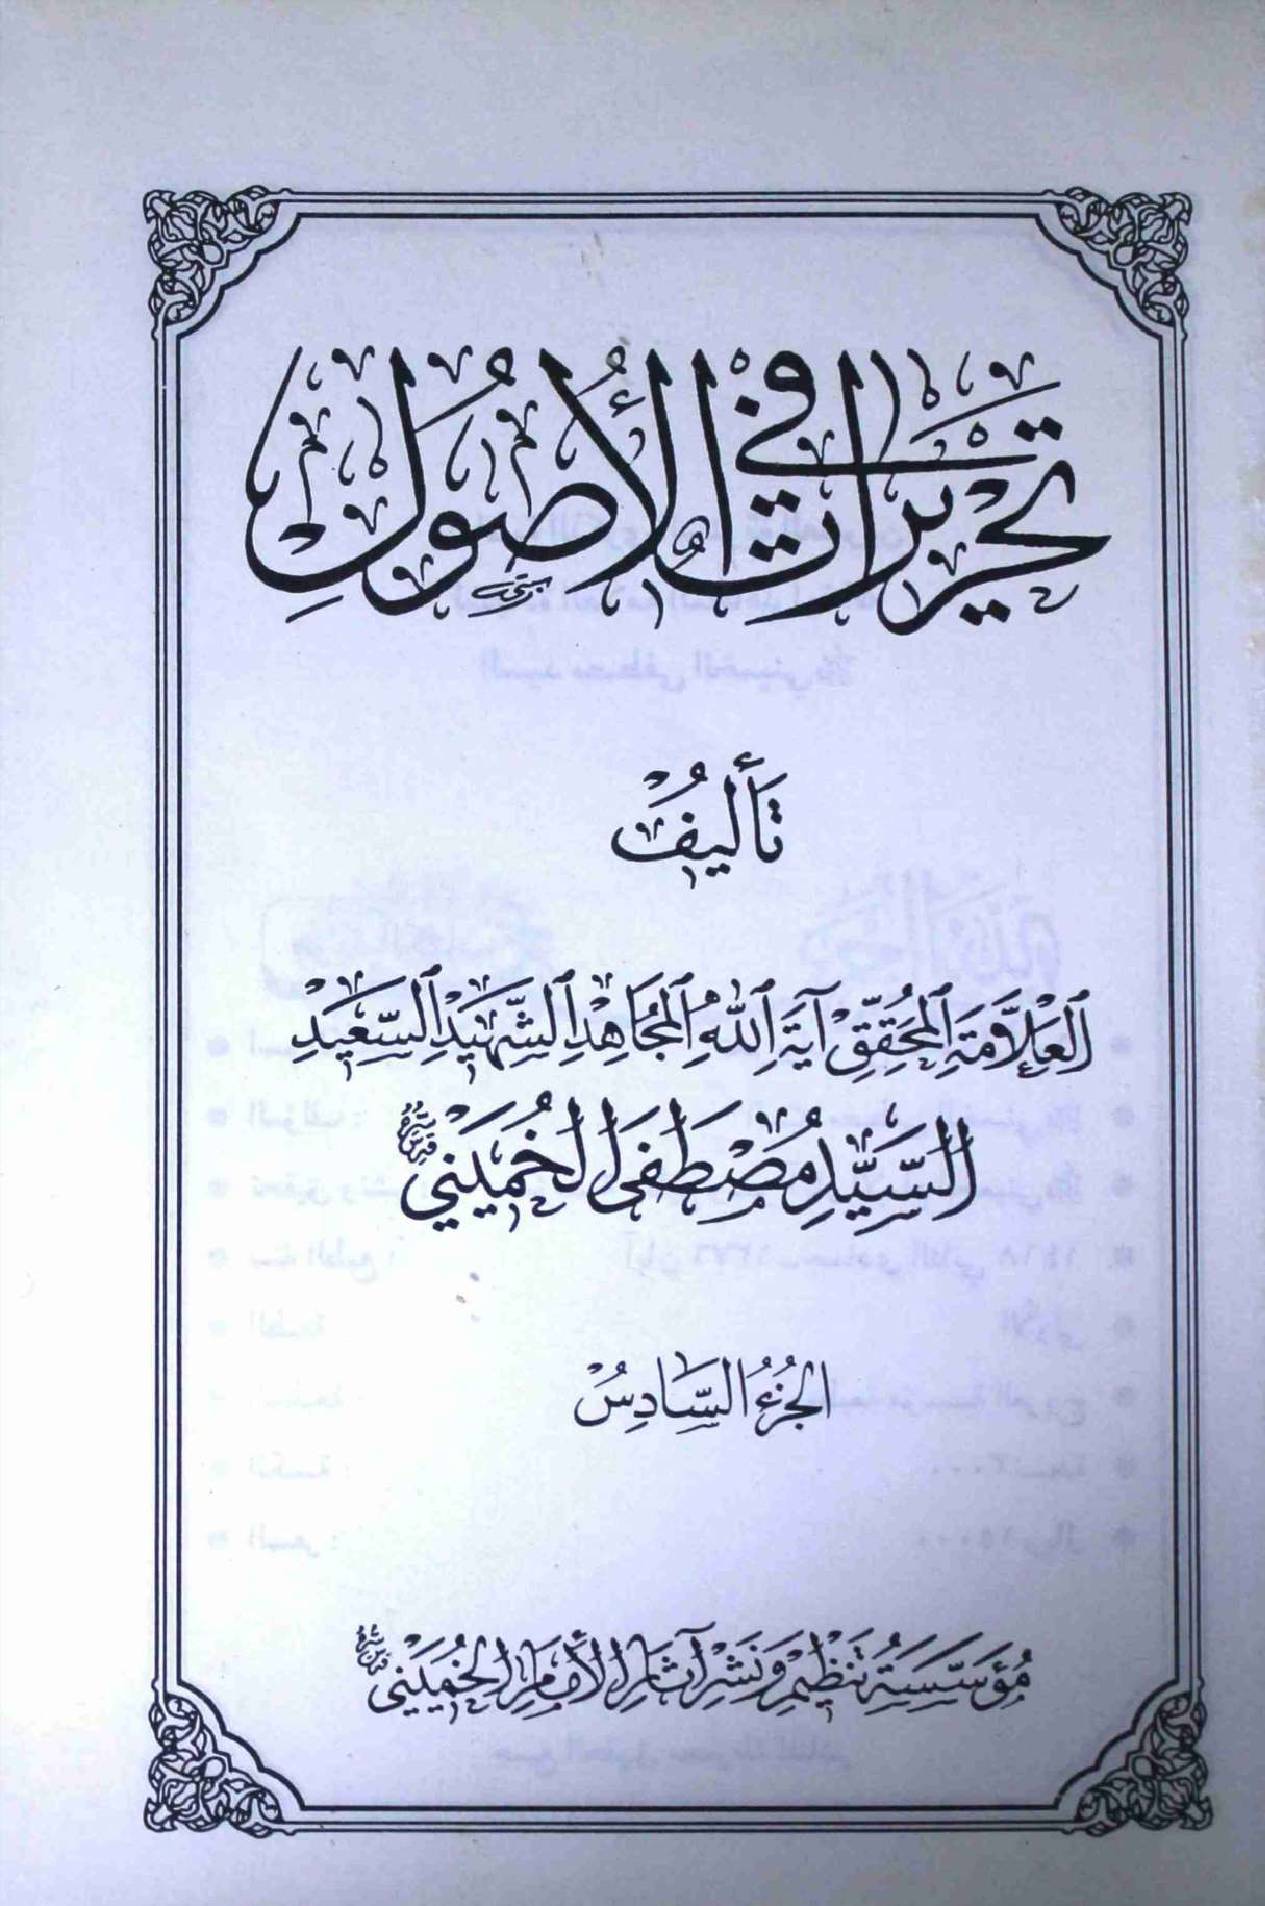 تحريرات في الأُصُولِ
تأليفُ
العَلاَّمَةِ المُحَقِّقِ آيَةِ اللهِ المُجَاهِدِ الشَّهِيدِ السَّعِيدِ
السَيِّدِ مُصْطَفَى الخُمَيْنِيّ
الجُزءُ السَّادِسُ
مُؤَسَّسَةُ تَنظِيمِ وَنَشْرِ آثَارِ الأمَامِ الخُمَيْنِيّ